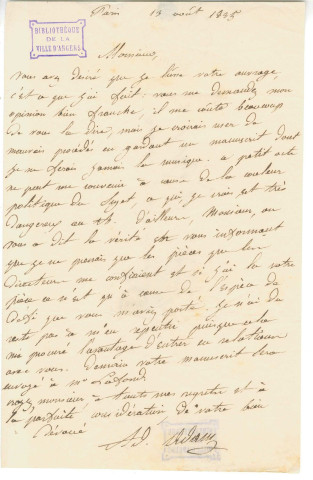 Paris 13 août 1835
BIBLIOTHÈQUE
DE LA
VILLE D'ANGERS
Monsieur,
vous avez désiré que je lusse votre ouvrage
c'est ce que j'ai fait: vous me demandez mon
opinion bien franche, il me coûte beaucoup
de vous la dire, mais je croirais user de
mauvais procédé en gardant un manuscrit dont
je ne ferais jamais la musique. ce petit acte
ne peut me convenir à cause de la
politique du sujet, ce que je crois est très
dangereux au th. d'ailleurs, Monsieur, on
vous a dit la vérité en vous informant
que je ne prenais que les pièces que les
directeurs me confiaient et si j'ai lu votre
pièce ce n'est qu'à cause de l'espèce de
défi que vous m'aviez porté. je n'ai du
reste pas à m'en repentir puisque cela
me procure l'avantage d'entrer en relations
avec vous. Demain votre manuscrit sera
envoyé à Mr Lafond.
croyez monsieur à tous mes regrets et à
la parfaite considération de votre bien
dévoué
Ad. Adam